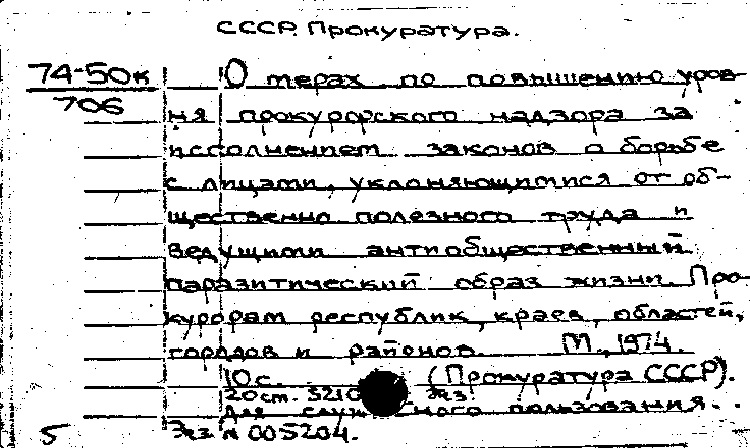 СССР. Прокуратура.
74-50к
706
О мерах по повышению уров-
ня прокурорского надзора за
исполнением законов о борьбе
с лицами, уклоняющимися от об-
щественно полезного труда и
ведущими антиобщественный
паразитический образ жизни. Про-
курорам республик, краев, областей,
городов и районов. М., 1974.
10 с. (Прокуратура СССР).
20 см. экз.
Для служебного пользования.
Экз. № 005204.
5